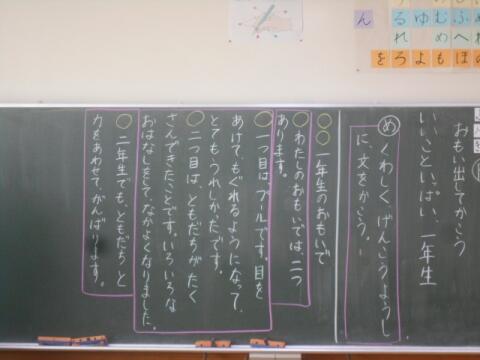 おもい出してかこう
いいこといっぱい、一年生
め くわしく げんこうようし
に、文をかこう。
一年生のおもいで
わたしのおもいでは、二つ
あります。
一つ目は、プールです。目を
あけて、もぐれるようになって、
とてもうれしかったです。
二つ目は、ともだちがたく
さんできたことです。いろいろな
おはなしをして、なかよくなりました。
二年生でも、ともだちと
力をあわせて、がんばります。